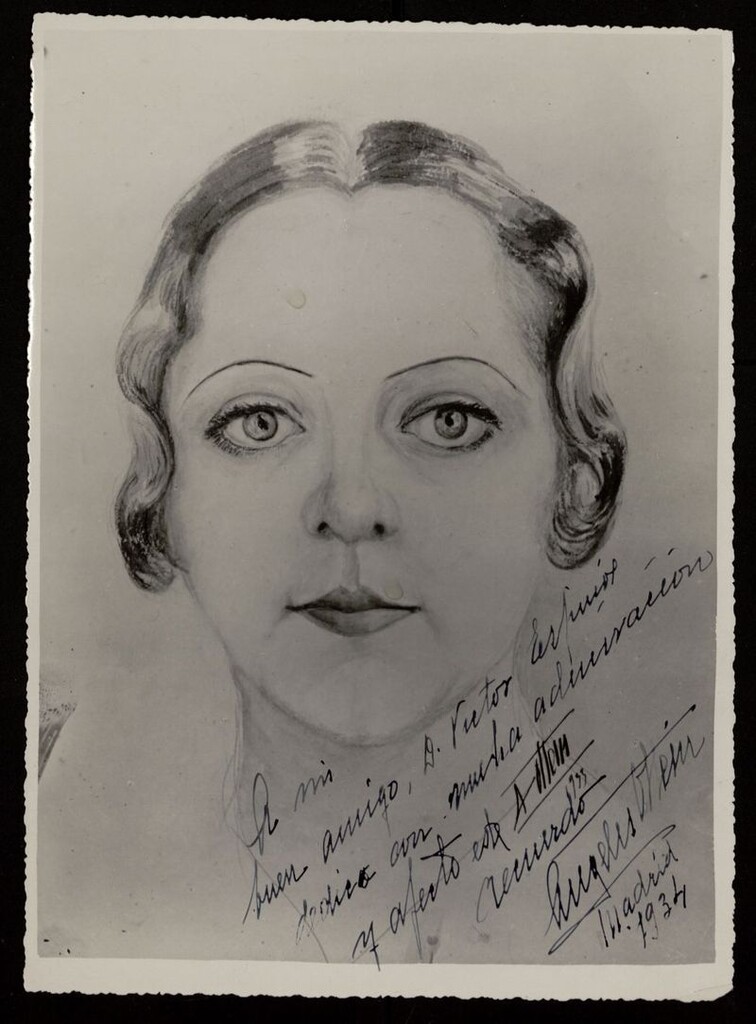 A mi
buen amigo, D. Victor Espinós
dedico con mucha admiración
y afecto este
recuerdo
Angeles Otein
Madrid
1934